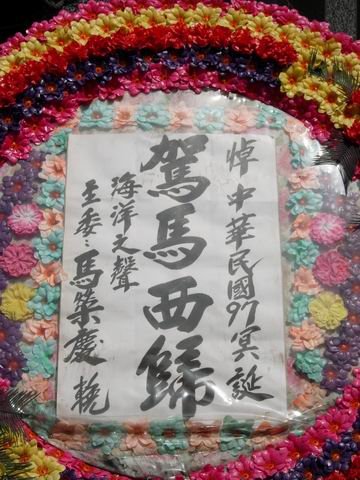 悼中華民國97冥誕
駕馬西歸
海洋之聲
主委:馬築慶 輓